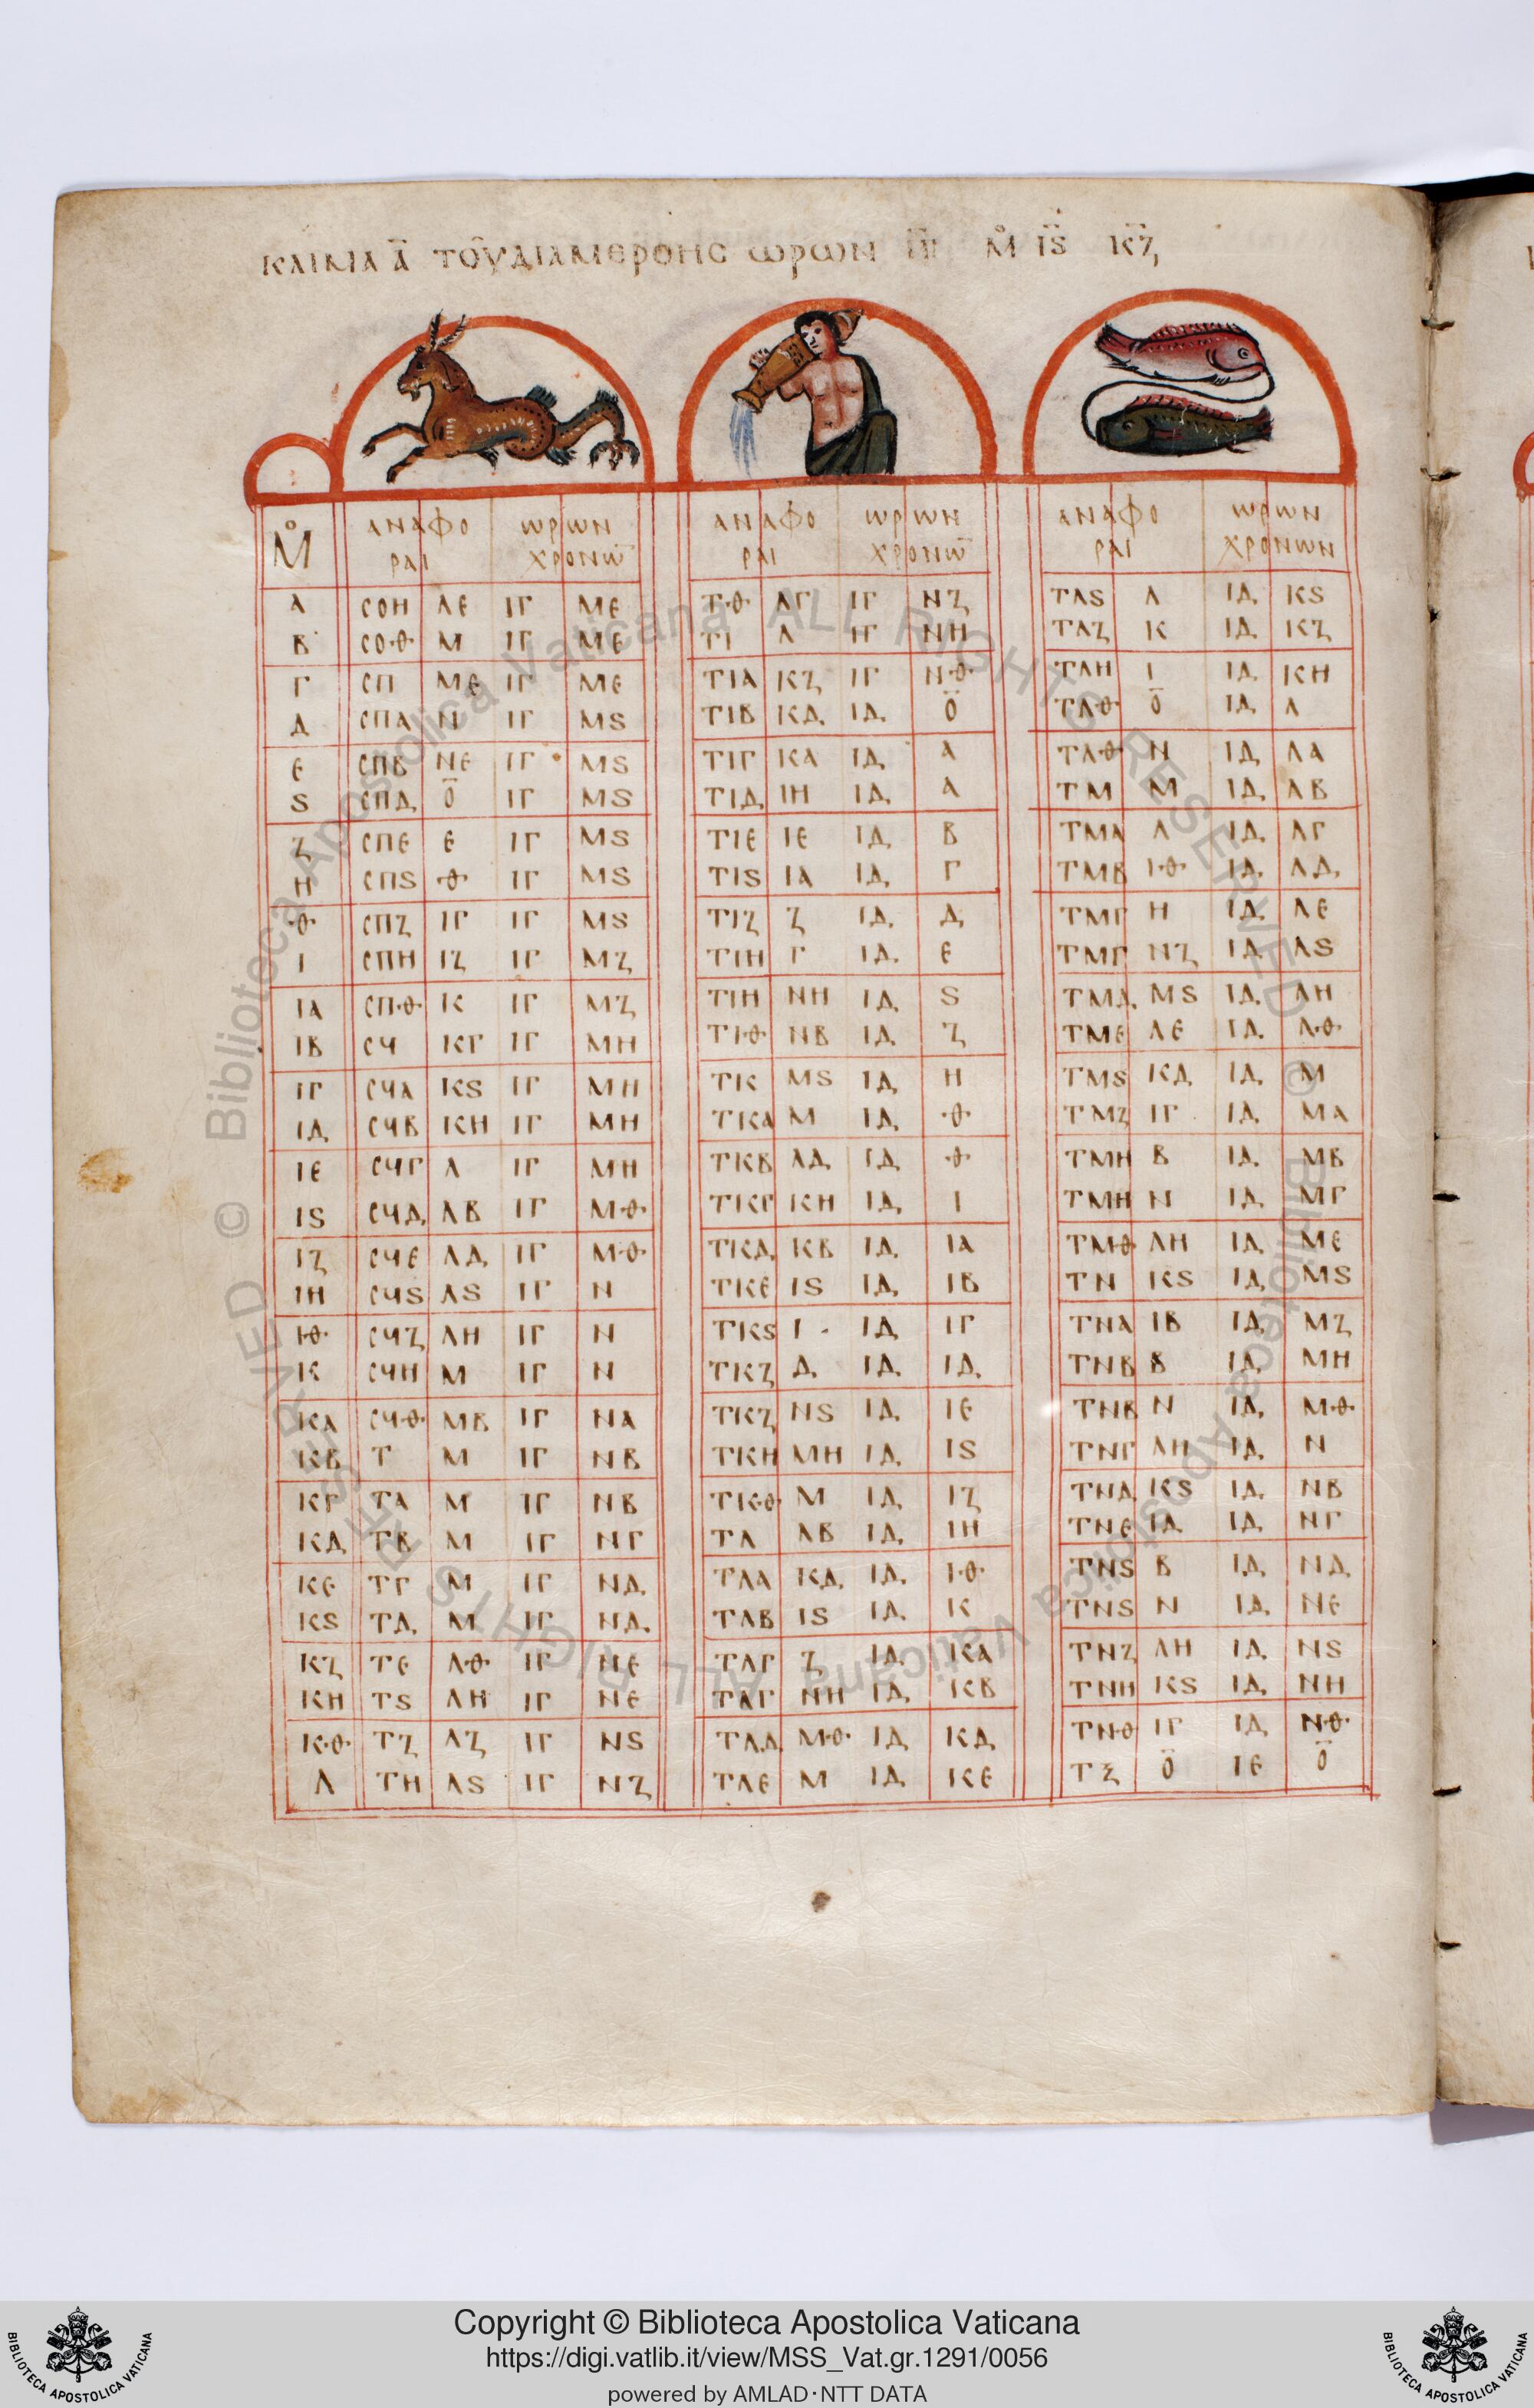 ΚΛΙΜΑ Α ΤΟΥ ΔΙΑ ΜΕΡΟΗC ѠΡѠΝ ΙΓ Μ Ιϛ ΚΖ
Μ ΑΝΑΦΟ ѠΡѠΝ ΑΝΑΦΟ ѠΡѠΝ ΑΝΑΦΟ ѠΡѠΝ
ΡΑΙ ΧΡΟΝѠ ΡΑΙ ΧΡΟΝѠ ΡΑΙ ΧΡΟΝѠΝ
Α CΟΗ ΛΕ ΙΓ ΜΕ ΤΘ ΛΓ ΙΓ ΝΖ ΤΛϛ Λ ΙΔ Κϛ
Β CΟΘ Μ ΙΓ ΜΕ ΤΙ Λ ΙΓ ΝΗ ΤΛΖ Κ ΙΔ ΚΖ
Γ CΠ ΜΕ ΙΓ ΜΕ ΤΙΑ ΚΖ ΙΓ ΝΘ ΤΛΗ Ι ΙΔ ΚΗ
Δ CΠΑ Ν ΙΓ Μϛ ΤΙΒ ΚΔ ΙΔ Ο ΤΛΘ Ο ΙΔ Λ
Ε CΠΒ ΝΕ ΙΓ Μϛ ΤΙΓ ΚΑ ΙΔ Α ΤΛΘ Ν ΙΔ ΛΑ
ϛ CΠΔ Ο ΙΓ Μϛ ΤΙΔ ΙΗ ΙΔ Α ΤΜ Μ ΙΔ ΛΒ
Ζ CΠΕ Ε ΙΓ Μϛ ΤΙΕ ΙΕ ΙΔ Β ΤΜΑ Λ ΙΔ ΛΓ
Η CΠϛ Θ ΙΓ Μϛ ΤΙϛ ΙΑ ΙΔ Γ ΤΜΒ ΙΘ ΙΔ ΛΔ
Θ CΠΖ ΙΓ ΙΓ Μϛ ΤΙΖ Ζ ΙΔ Δ ΤΜΓ Η ΙΔ ΛΕ
Ι CΠΗ ΙΖ ΙΓ ΜΖ ΤΙΗ Γ ΙΔ Ε ΤΜΓ ΝΖ ΙΔ Λϛ
ΙΑ CΠΘ Κ ΙΓ ΜΖ ΤΙΗ ΝΗ ΙΔ ϛ ΤΜΔ Μϛ ΙΔ ΛΗ
ΙΒ CϞ ΚΓ ΙΓ ΜΗ ΤΙΘ ΝΒ ΙΔ Ζ ΤΜΕ ΛΕ ΙΔ ΛΘ
ΙΓ CϞΑ Κϛ ΙΓ ΜΗ ΤΚ Μϛ ΙΔ Η ΤΜϛ ΚΔ ΙΔ Μ
ΙΔ CϞΒ ΚΗ ΙΓ ΜΗ ΤΚΑ Μ ΙΔ Θ ΤΜΖ ΙΓ ΙΔ ΜΑ
ΙΕ CϞΓ Λ ΙΓ ΜΗ ΤΚΒ ΛΔ ΙΔ Θ ΤΜΗ Β ΙΔ ΜΒ
Ιϛ CϞΔ ΛΒ ΙΓ ΜΘ ΤΚΓ ΚΗ ΙΔ Ι ΤΜΗ Ν ΙΔ ΜΓ
ΙΖ CϞΕ ΛΔ ΙΓ ΜΘ ΤΚΔ ΚΒ ΙΔ ΙΑ ΤΜΘ ΛΗ ΙΔ ΜΕ
ΙΗ CϞϛ Λϛ ΙΓ Ν ΤΚΕ Ιϛ ΙΔ ΙΒ ΤΝ Κϛ ΙΔ Μϛ
ΙΘ CϞΖ ΛΗ ΙΓ Ν ΤΚϛ Ι ΙΔ ΙΓ ΤΝΑ ΙΒ ΙΔ ΜΖ
Κ CϞΗ Μ ΙΓ Ν ΤΚΖ Δ ΙΔ ΙΔ ΤΝΒ Β ΙΔ ΜΗ
ΚΑ CϞΘ ΜΒ ΙΓ ΝΑ ΤΚΖ Νϛ ΙΔ ΙΕ ΤΝΒ Ν ΙΔ ΜΘ
ΚΒ Τ Μ ΙΓ ΝΒ ΤΚΗ ΜΗ ΙΔ Ιϛ ΤΝΓ ΛΗ ΙΔ Ν
ΚΓ ΤΑ Μ ΙΓ ΝΒ ΤΚΘ Μ ΙΔ ΙΖ ΤΝΔ Κϛ ΙΔ ΝΒ
ΚΔ ΤΒ Μ ΙΓ ΝΓ ΤΛ ΛΒ ΙΔ ΙΗ ΤΝΕ ΙΔ ΙΔ ΝΓ
ΚΕ ΤΓ Μ ΙΓ ΝΔ ΤΛΑ ΚΔ ΙΔ ΙΘ ΤΝϛ Β ΙΔ ΝΔ
Κϛ ΤΔ Μ ΙΓ ΝΔ ΤΛΒ Ιϛ ΙΔ Κ ΤΝϛ Ν ΙΔ ΝΕ
ΚΖ ΤΕ ΛΘ ΙΓ ΝΕ ΤΛΓ Ζ ΙΔ ΚΑ ΤΝΖ ΛΗ ΙΔ Νϛ
ΚΗ Τϛ ΛΗ ΙΓ ΝΕ ΤΛΓ ΝΗ ΙΔ ΚΒ ΤΝΗ Κϛ ΙΔ ΝΗ
ΚΘ ΤΖ ΛΖ ΙΓ Νϛ ΤΛΔ ΜΘ ΙΔ ΚΔ ΤΝΘ ΙΓ ΙΔ ΝΘ
Λ ΤΗ Λϛ ΙΓ ΝΖ ΤΛΕ Μ ΙΔ ΚΕ ΤΞ Ο ΙΕ Ο
© Biblioteca Apostolica Vaticana ALL RIGHTS RESERVED © Biblioteca Apostolica Vaticana ALL RIGHTS RESERVED
Copyright © Biblioteca Apostolica Vaticana
https://digi.vatlib.it/view/MSS_Vat.gr.1291/0056
powered by AMLAD·NTT DATA
BIBLIOTECA APOSTOLICA VATICANA
BIBLIOTECA APOSTOLICA VATICANA